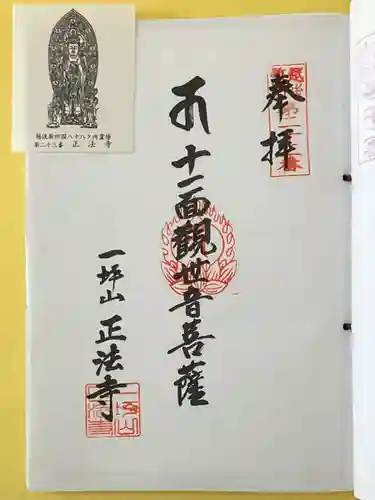 奉拝
十一面観世音菩薩
一坪山 正法寺
越後新四国八十八ケ所霊場
第二十三番 正法寺